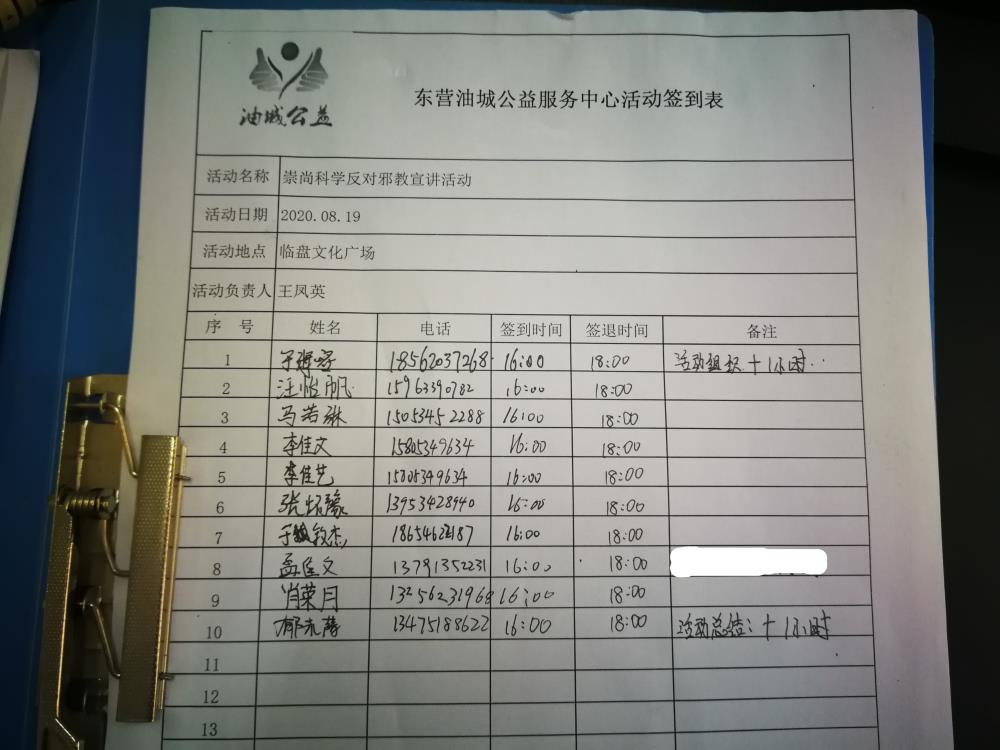 油城公益
东营油城公益服务中心活动签到表
活动名称 崇尚科学反对邪教宣讲活动
活动日期 2020.08.19
活动地点 临盘文化广场
活动负责人 王凤英
序 号 姓名 电话 签到时间 签退时间 备注
1 18562037268 16:00 18:00 活动组织+1小时
2 汪怡帆 15963390782 16:00 18:00
3 马若琳 15053452288 16:00 18:00
4 李佳文 15805349634 16:00 18:00
5 李佳艺 15805349634 16:00 18:00
6 张怀豫 13953428940 16:00 18:00
7 16:00 18:00
8 孟庆文 13791352231 16:00 18:00
9 肖荣月 13256231968 16:00 18:00
10 13475188622 16:00 18:00 活动总结:+1小时
11
12
13